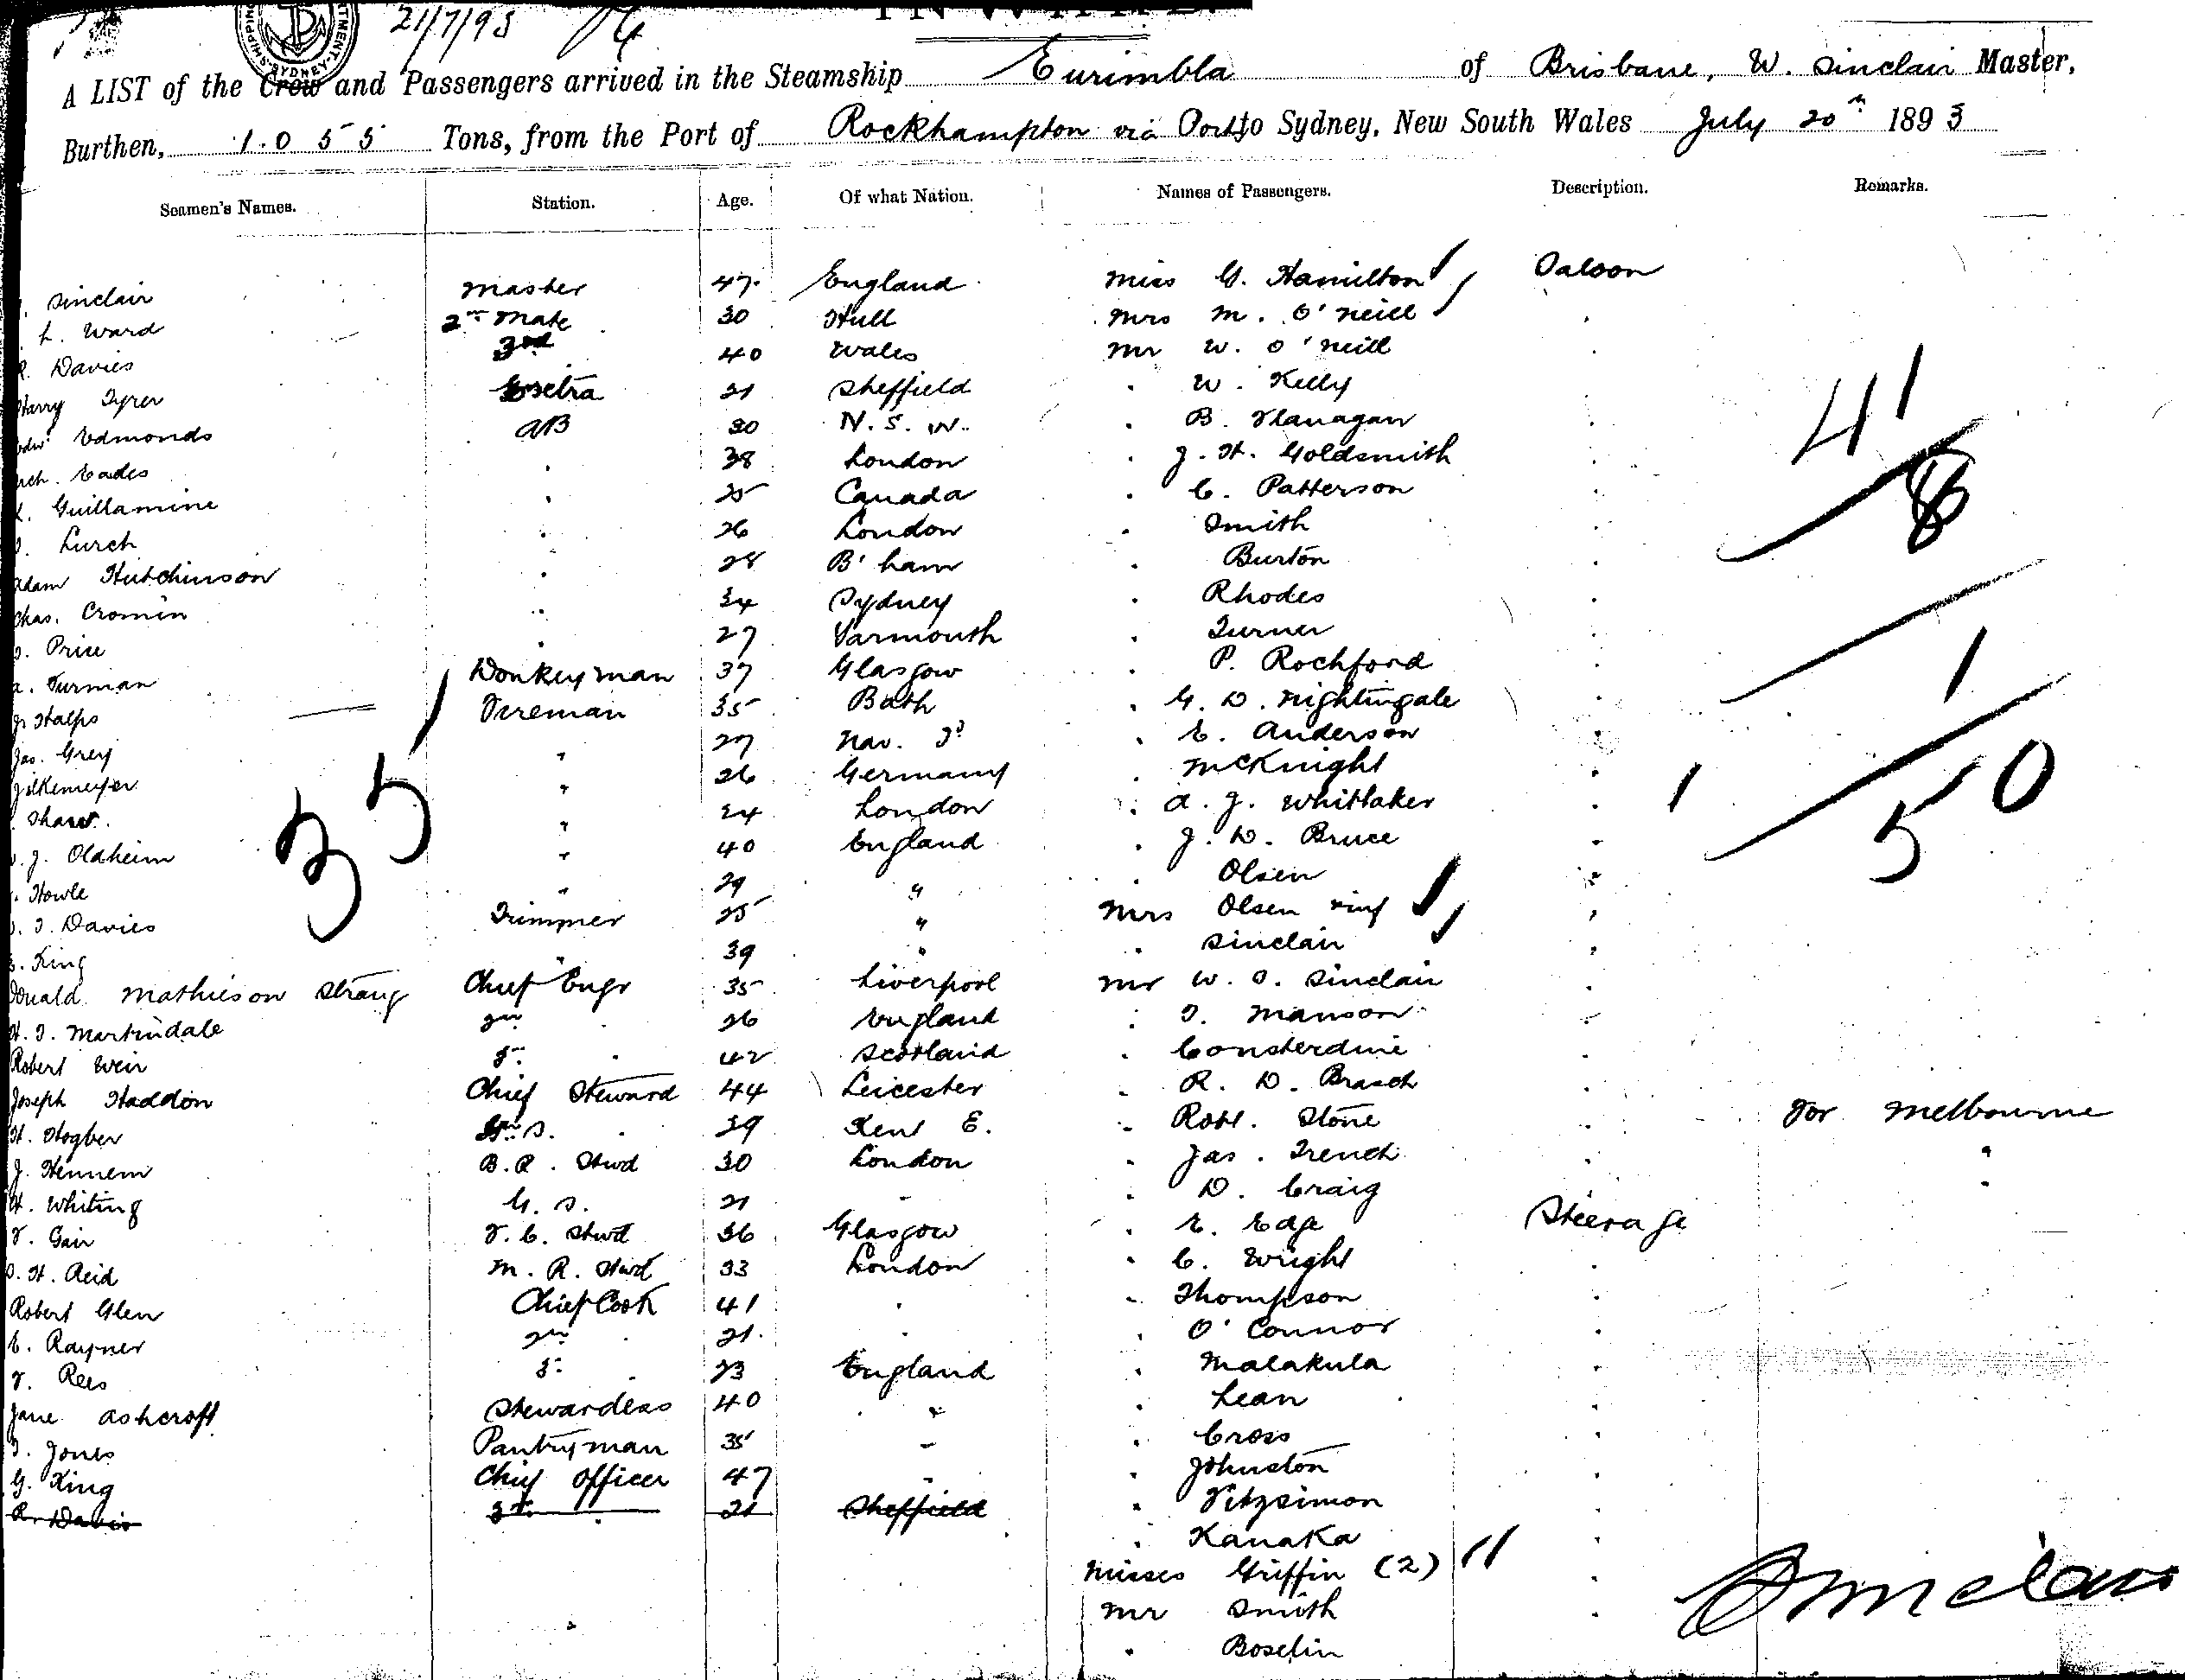 21/7/93
A LIST of the Crew and Passengers arrived in the Steamship Eurimbla of Brisbane, W. Sinclair Master,
Burthen, 1055 Tons, from the Port of Rockhampton via Ports to Sydney, New South Wales July 20th 1893
Seamen's Names. Station. Age. Of what Nation. Names of Passengers. Description. Remarks.
Sinclair Master 47 England Miss G. Hamilton Saloon
L. Ward 2nd Mate 30 Hull Mrs M. O'Neill "
R. Davies 3rd 40 Wales Mr W. O'Neill "
Harry Tyrer Extra 21 Sheffield " W. Kelly "
Edw. Edmonds AB 30 N.S.W. " B. Flanagan " 41
Arch. Eades " 38 London " J. H. Goldsmith "
Guillamine " 25 Canada " C. Patterson " 8
Lurch " 26 London " Smith "
Adam Hutchinson " 28 B'ham " Burton "
Chas. Cromin " 34 Sydney " Rhodes "
Price " 27 Yarmouth " Turner "
A. Furman Donkeyman 37 Glasgow " P. Rochford " 1
J. Halps Fireman 35 Bath " G. D. Nightingale "
Jas. Grey " 27 Nav. Id " E. Anderson "
" 26 Germany " McKnight " 1 50
Shaw " 24 London " A. J. Whittaker "
J. Oldheim " 40 England " J. D. Bruce "
35
Howle " 29 " " Olsen "
T. Davies Trimmer 25 " Mrs Olsen "
King " 39 " " Sinclair "
Donald Mathieson Strang Chief Engr 35 Liverpool Mr W. S. Sinclair "
H. T. Martindale 2nd " 26 England " T. Manson "
Robert Weir 3rd " 42 Scotland " Consterdine "
Joseph Haddon Chief Steward 44 Leicester " R. D. Brasch "
H. Hogben " 39 Kent E. " Robt. Stone " For Melbourne
J. Hennem B.R. Stwd 30 London " Jas. French " "
H. Whiting G.S. 21 " " D. Craig " "
F. Gair F.C. Stwd 36 Glasgow " E. Edge Steerage
H. Reid M.R. Stwd 33 London " C. Wright "
Robert Glen Chief Cook 41 " " Thompson "
E. Rayner 2nd " 21 " " O'Connor "
F. Rees 3rd " 23 England " Malakula "
Jane Ashcroft Stewardess 40 " " Lean "
T. Jones Pantryman 35 " " Cross "
G. King Chief Officer 47 " " Johnston "
R. Davis 3rd " 21 Sheffield " Fitzsimon "
" Kanaka "
Misses Griffin (2) "
Mr Smith "
" Boselin
Sinclair